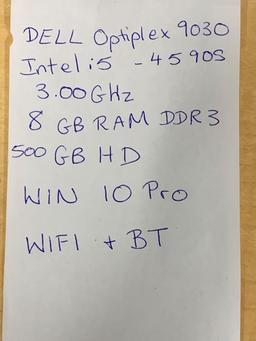 DELL Optiplex 9030
Intel i5 - 4590S
3.00 GHz
8 GB RAM DDR3
500 GB HD
WIN 10 Pro
WIFI + BT